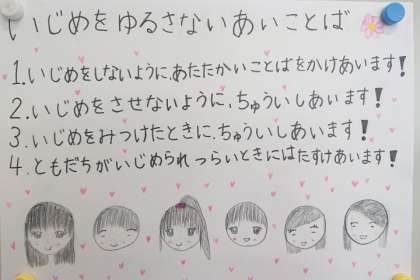 いじめをゆるさないあいことば
1.いじめをしないように、あたたかいことばをかけあいます!
2.いじめをさせないように、ちゅういしあいます!
3.いじめをみつけたときに、ちゅういしあいます!
4.ともだちがいじめられつらいときにはたすけあいます!